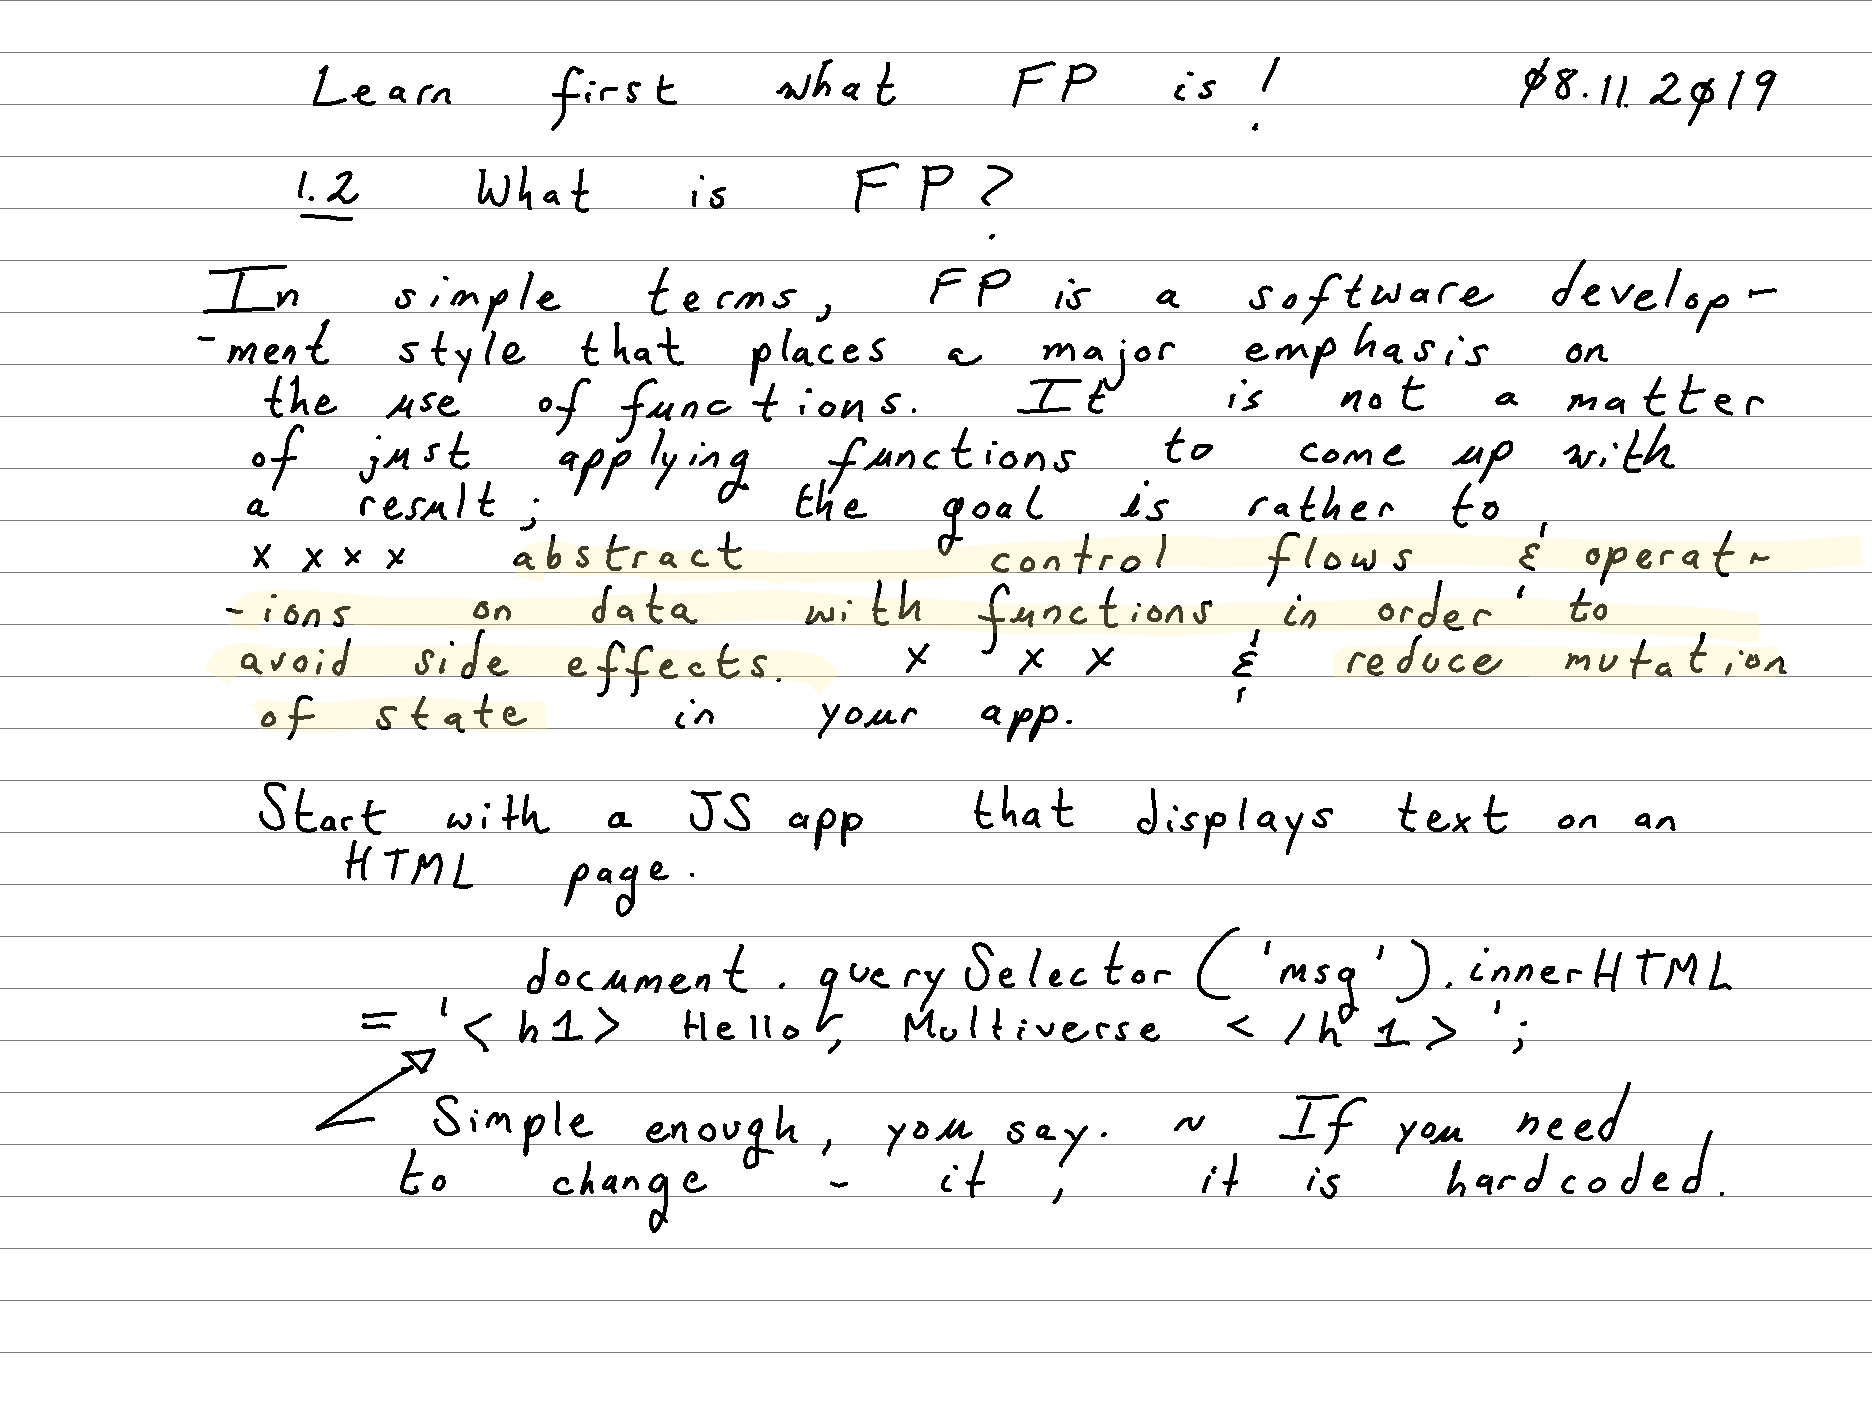 Learn first what FP is! 08.11.2019
1.2 What is FP?
In simple terms, FP is a software develop-
-ment style that places a major emphasis on
the use of functions. It is not a matter
of just applying functions to come up with
a result; the goal is rather to
x x x x abstract control flows & operat-
-ions on data with functions in order to
avoid side effects. x x x & reduce mutation
of state in your app.
Start with a JS app that displays text on an
HTML page.
document.querySelector('msg').innerHTML
= '<h1> Hello, Multiverse </h1>';
Simple enough, you say. ~ If you need
to change - it, it is hardcoded.